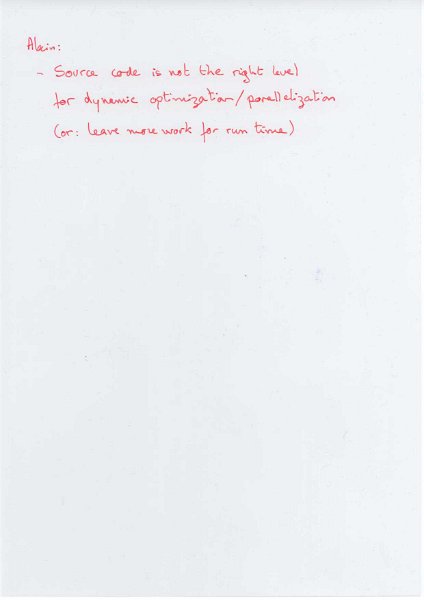 Alain:
- Source code is not the right level
for dynamic optimization/parallelization
(or: leave more work for run time)